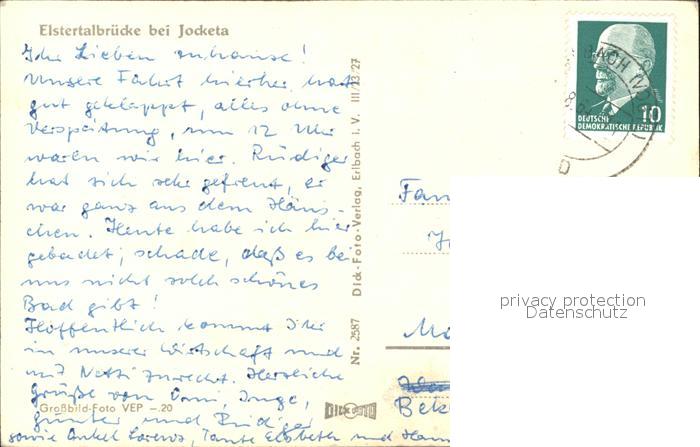 Elstertalbrücke bei Jocketa
Ihr Lieben zuhause!
Unsere Fahrt hierher hat
gut geklappt, alles ohne
Verspätung, um 12 Uhr
waren wir hier. Rüdiger
hat sich sehr gefreut, er
war ganz aus dem Häus-
chen. Heute habe ich hier
gebadet; schade, daß es bei
uns nicht solch schönes
Bad gibt!
Hoffentlich kommt Ihr
in unserer Wirtschaft und
mit Netti zurecht. Herzliche
Grüße von Omi, Inge,
Günter und Rüdiger
sowie Onkel Lorenz, Tante Elsbeth und
Großbild-Foto VEP –.20
Nr. 2587 Dick-Foto-Verlag, Erlbach i. V. III/23/27
DICK FOTO
10
DEUTSCHE
DEMOKRATISCHE REPUBLIK
Fam
Bek
privacy protection
Datenschutz